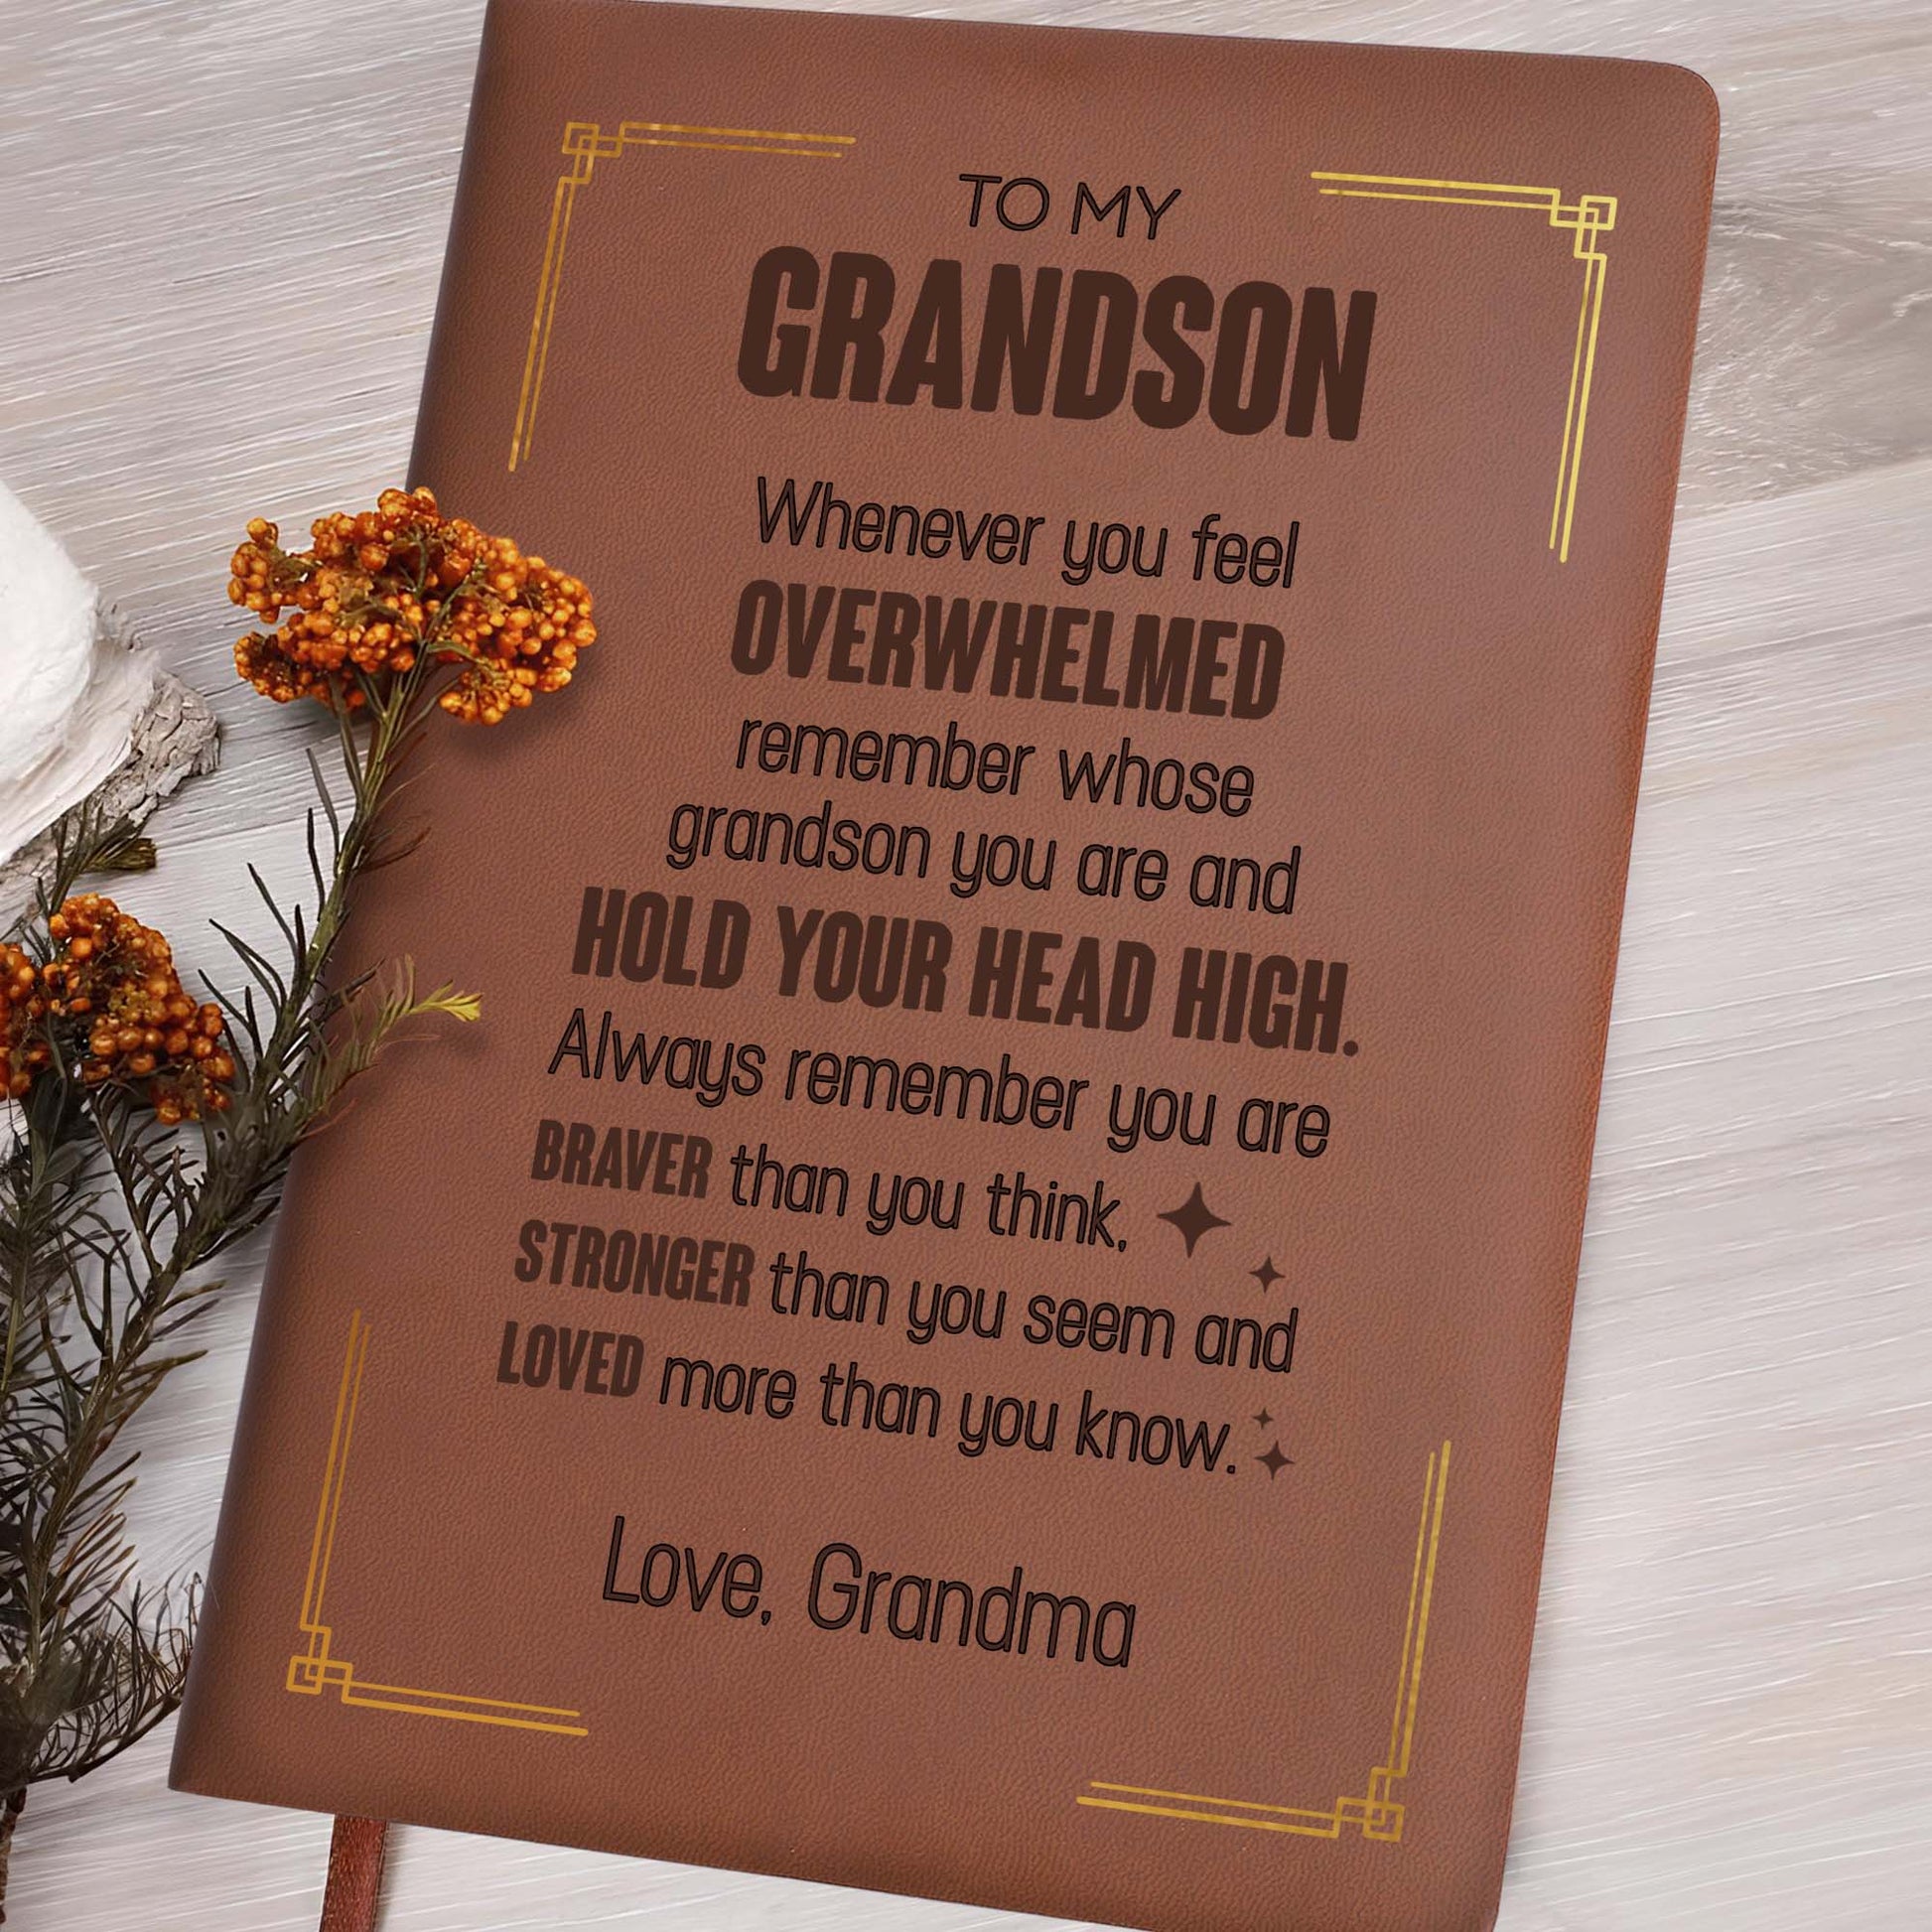 TO MY
GRANDSON
Whenever you feel
OVERWHELMED
remember whose
grandson you are and
HOLD YOUR HEAD HIGH.
Always remember you are
BRAVER than you think,
STRONGER than you seem and
LOVED more than you know.
Love, Grandma